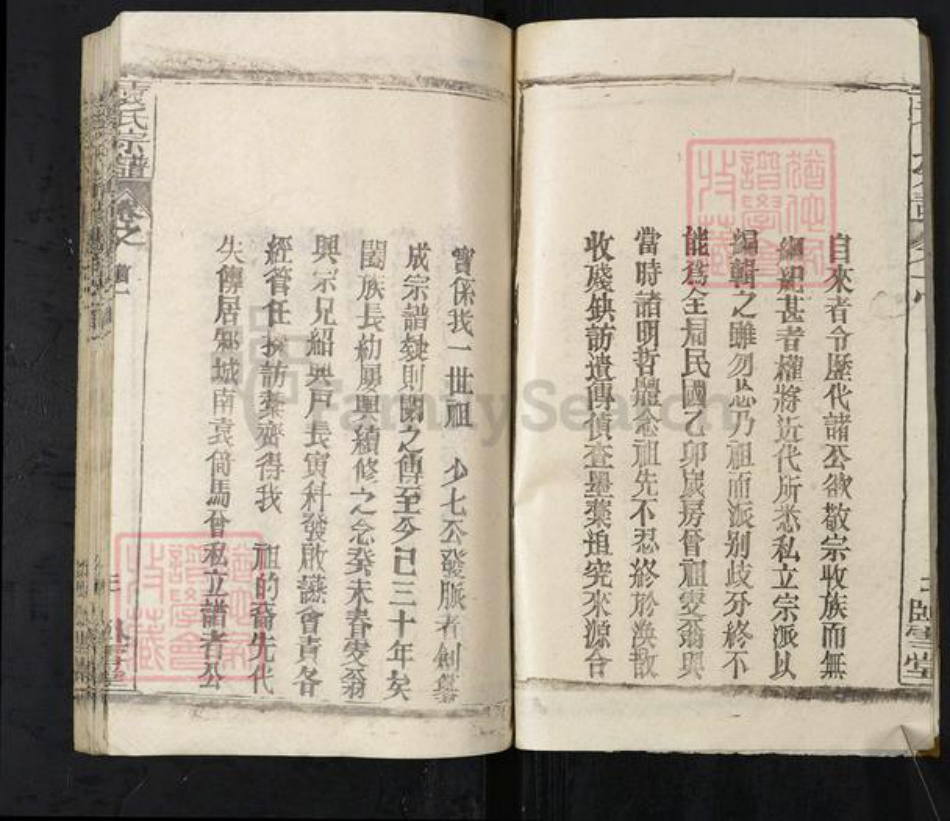 自來者令歷代諸公欲敬宗收族而無
綱紀甚者權將近代所悉私立宗派以
編輯之雖勿忘乃祖而派別歧分終不
能爲全局民國乙卯歲房晉祖雯翁與
當時諸明哲體念祖先不忍終於渙散
收殘缺訪遺傳偵查墨藁追究來源合
臥雪堂
實係我一世祖 少七公發脈者創集
成宗譜歘則閱之傳至今已三十年矣
閤族長幼屢興續修之念癸未春雯翁
興宗兄紹興戶長寅科發啟讌會責各
經管任採訪藁齊得我 祖的裔先代
失傳居邪城南袁倚馬曾私立譜者公
袁氏宗譜
卷之首一
FamilySearch